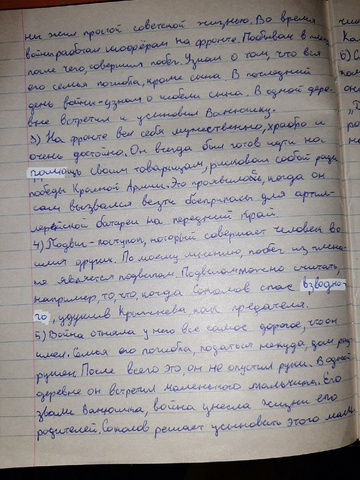 ни жил простой советской жизнью. Во время
войны работал шофёром на фронте. Побывал в плену
после чего, совершил побег. Узнал о том, что вся
его семья погибла, кроме сына. В последний
день войны - узнал о гибели сына. В одной дере-
вне встретил и усыновил Ванюшку.
3) На фронте вел себя мужественно, храбро и
очень достойно. Он всегда был готов идти на
помощь своим товарищам, рисковал собой ради
победы Красной Армии. Это проявилось, когда он
сам вызвался везти боеприпасы для артил-
лерийской батареи на передний край
4) Подвиг - поступок, который совершает человек во
имя других. По моему мнению, побег из плена
не является подвигом. Подвигом можно считать,
например, то, что, когда Соколов спас взводно-
го, удушив Крыжнева, как предателя.
5) Война отняла у него все самое дорогое, что он
имел. Семья его погибла, податься некуда, дом раз
рушен. После всего это, он не опустил руки. В одной
деревне он встретил маленького мальчика. Его
звали Ванюшка, война унесла жизни его
родителей. Соколов решает усыновить этого маль